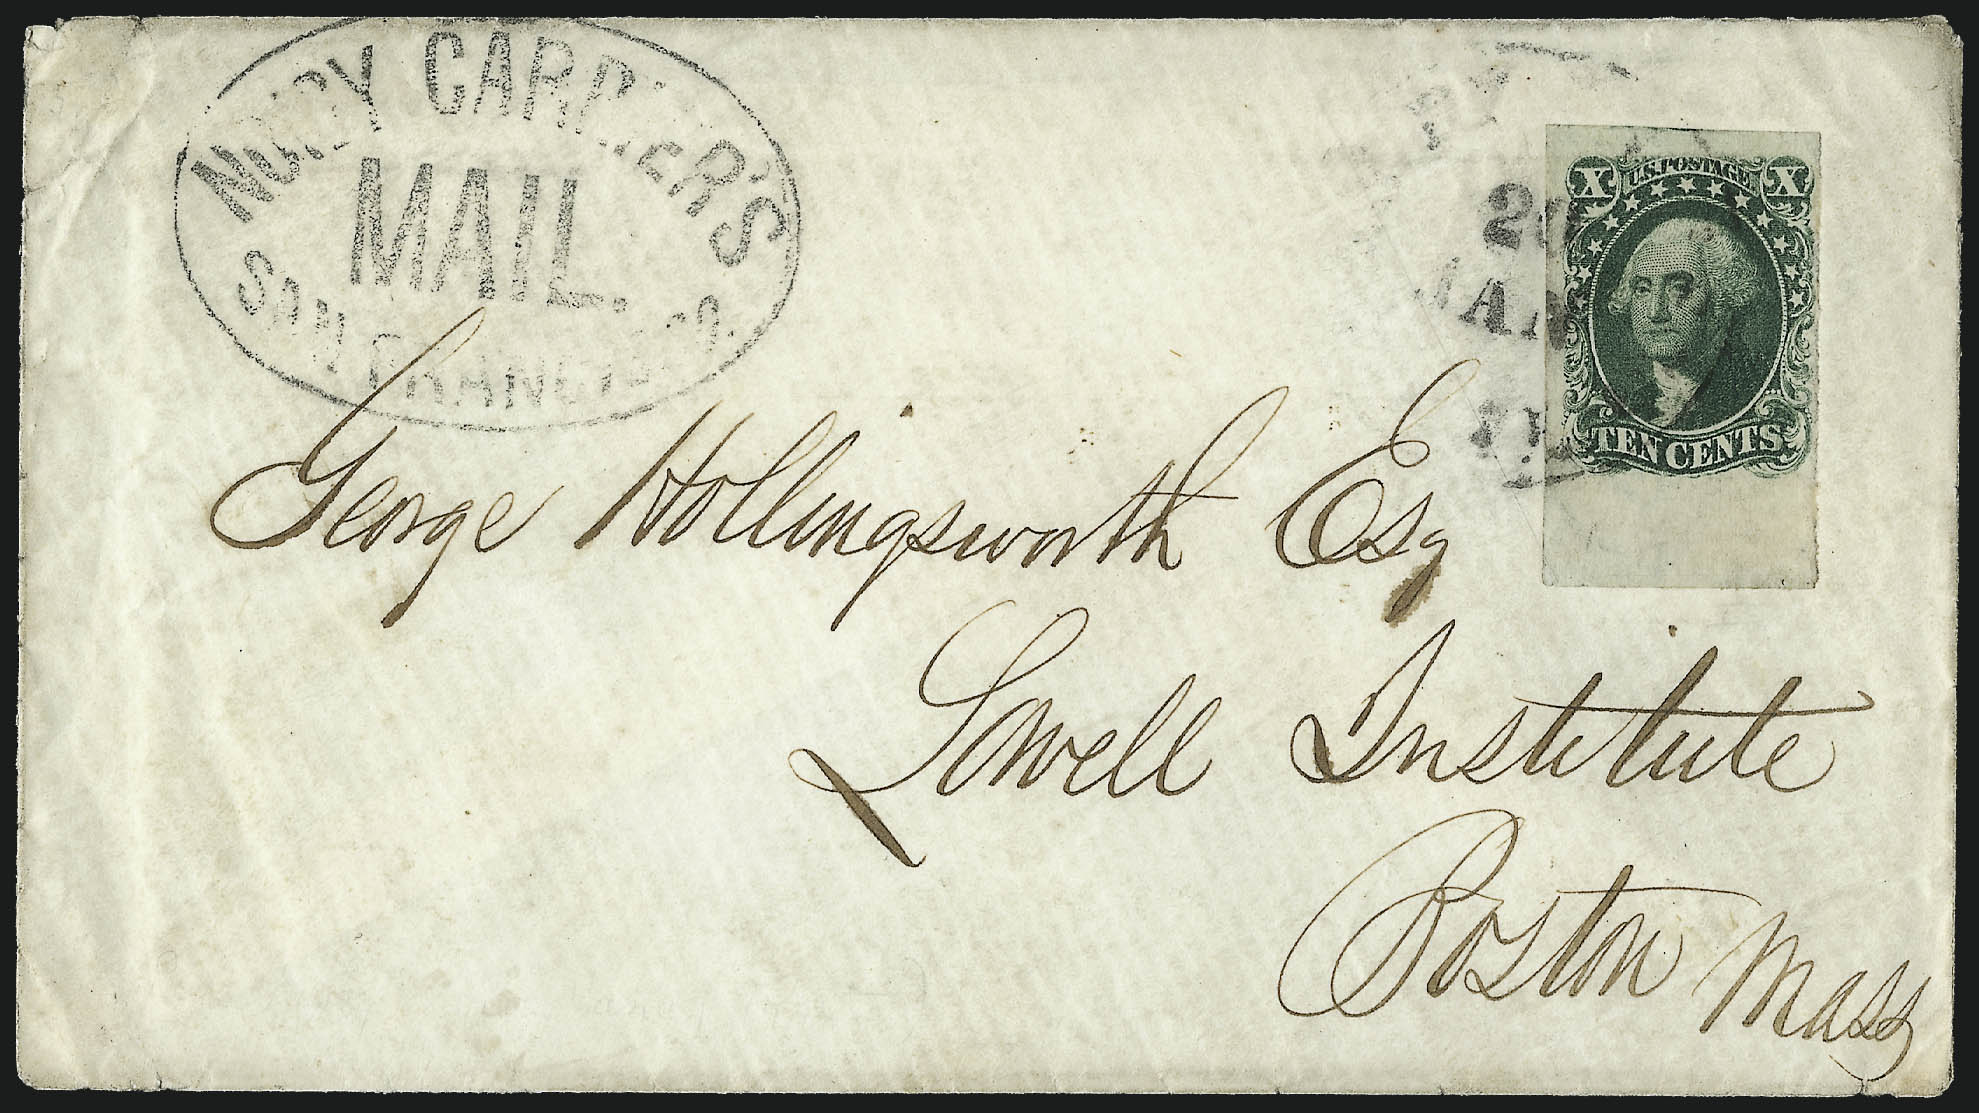 NOISY CARRIER'S
MAIL.
SAN FRANCISCO.
20
MAR
X U.S. POSTAGE X
TEN CENTS
George Hollingsworth Esq
Lowell Institute
Boston Mass